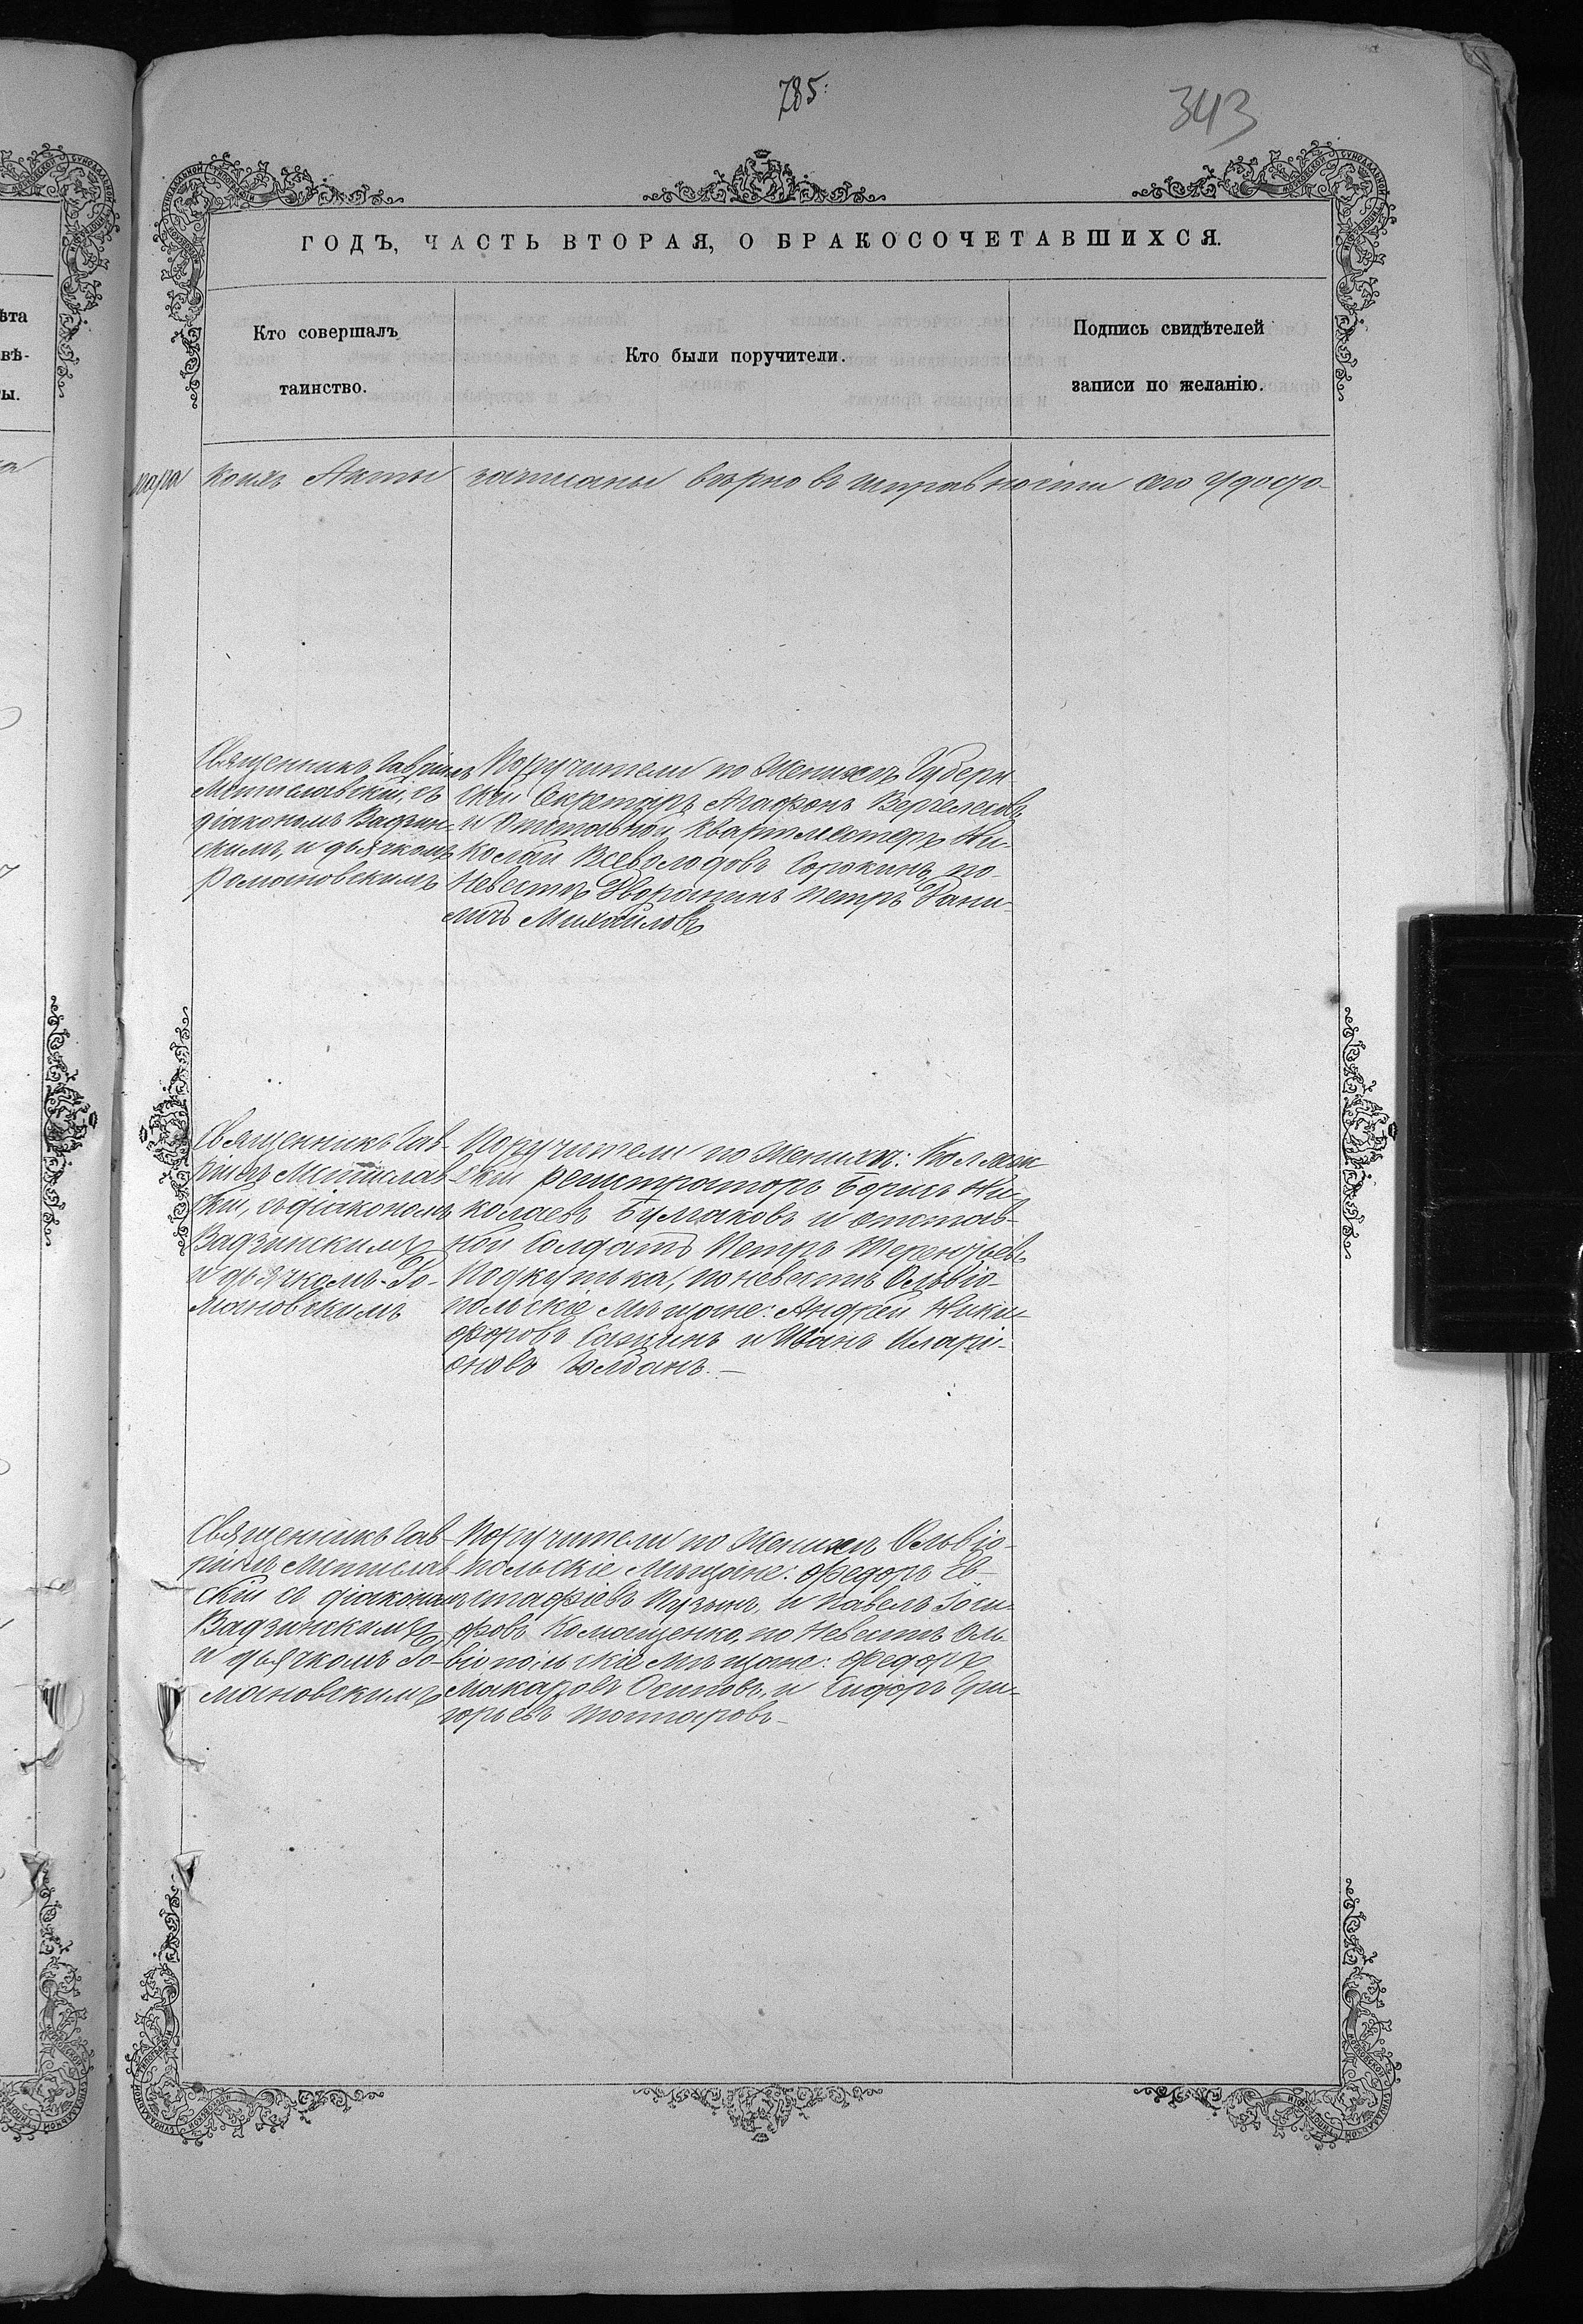 785.
343
ГОДЪ, ЧАСТЬ ВТОРАЯ, О БРАКОСОЧЕТАВШИХСЯ.
Кто совершалъ
таинство.
Кто были поручители.
Подпись свидѣтелей
записи по желанію.
коихъ Акты записаны вѣрно въ исправности сего удосто-
Священникъ Гавріилъ
Мстиславскій, съ
діакономъ Вадзин-
скимъ, и дьячкомъ
Романовскимъ
Поручители по Женихѣ Губерн-
скій Секретарь Агафонъ
и Отставной Квартмистеръ Ни-
колай Всеволодовъ Сорокинъ, по
Невестѣ Дворянинъ Петръ Дани-
ловъ Михайловъ
Священникъ Гав-
ріилъ Мстислав-
скій, съ діакономъ
Вадзинскимъ
и дьячкомъ Ро-
мановскимъ
Поручители по Женихѣ: Коллеж-
скій регистраторъ Борисъ Ни-
колаевъ Булгаковъ и отстав-
ной Солдатъ Петръ Терентьевъ
по невестѣ Ольвіо-
польскіе мѣщане: Андрей Ники-
форовъ и Иванъ Иларі-
оновъ
Священникъ Гав-
ріилъ Мстислав-
скій съ діакономъ
Вадзинскимъ
и дьячкомъ Ро-
мановскимъ
Поручители по Женихѣ Ольвіо-
польскіе Мѣщане: Федоръ Ев-
стафіевъ и Павелъ Іоси-
фовъ Комащенко, по Невестѣ Оль-
віопольскіе мѣщане: Федоръ
Макаровъ Осиповъ, и Сидоръ Гри-
горьевъ
ѣта
вѣ-
ы.